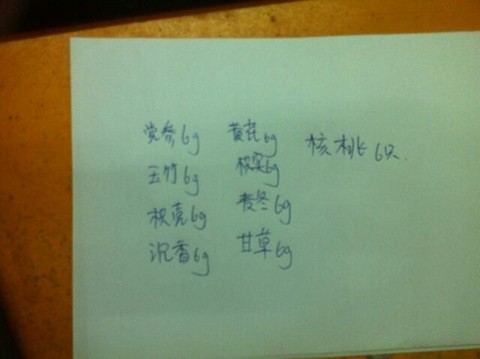 党参6g 黄芪6g 核桃6只.
玉竹6g 枳实6g
枳壳6g 麦冬6g
沉香6g 甘草6g